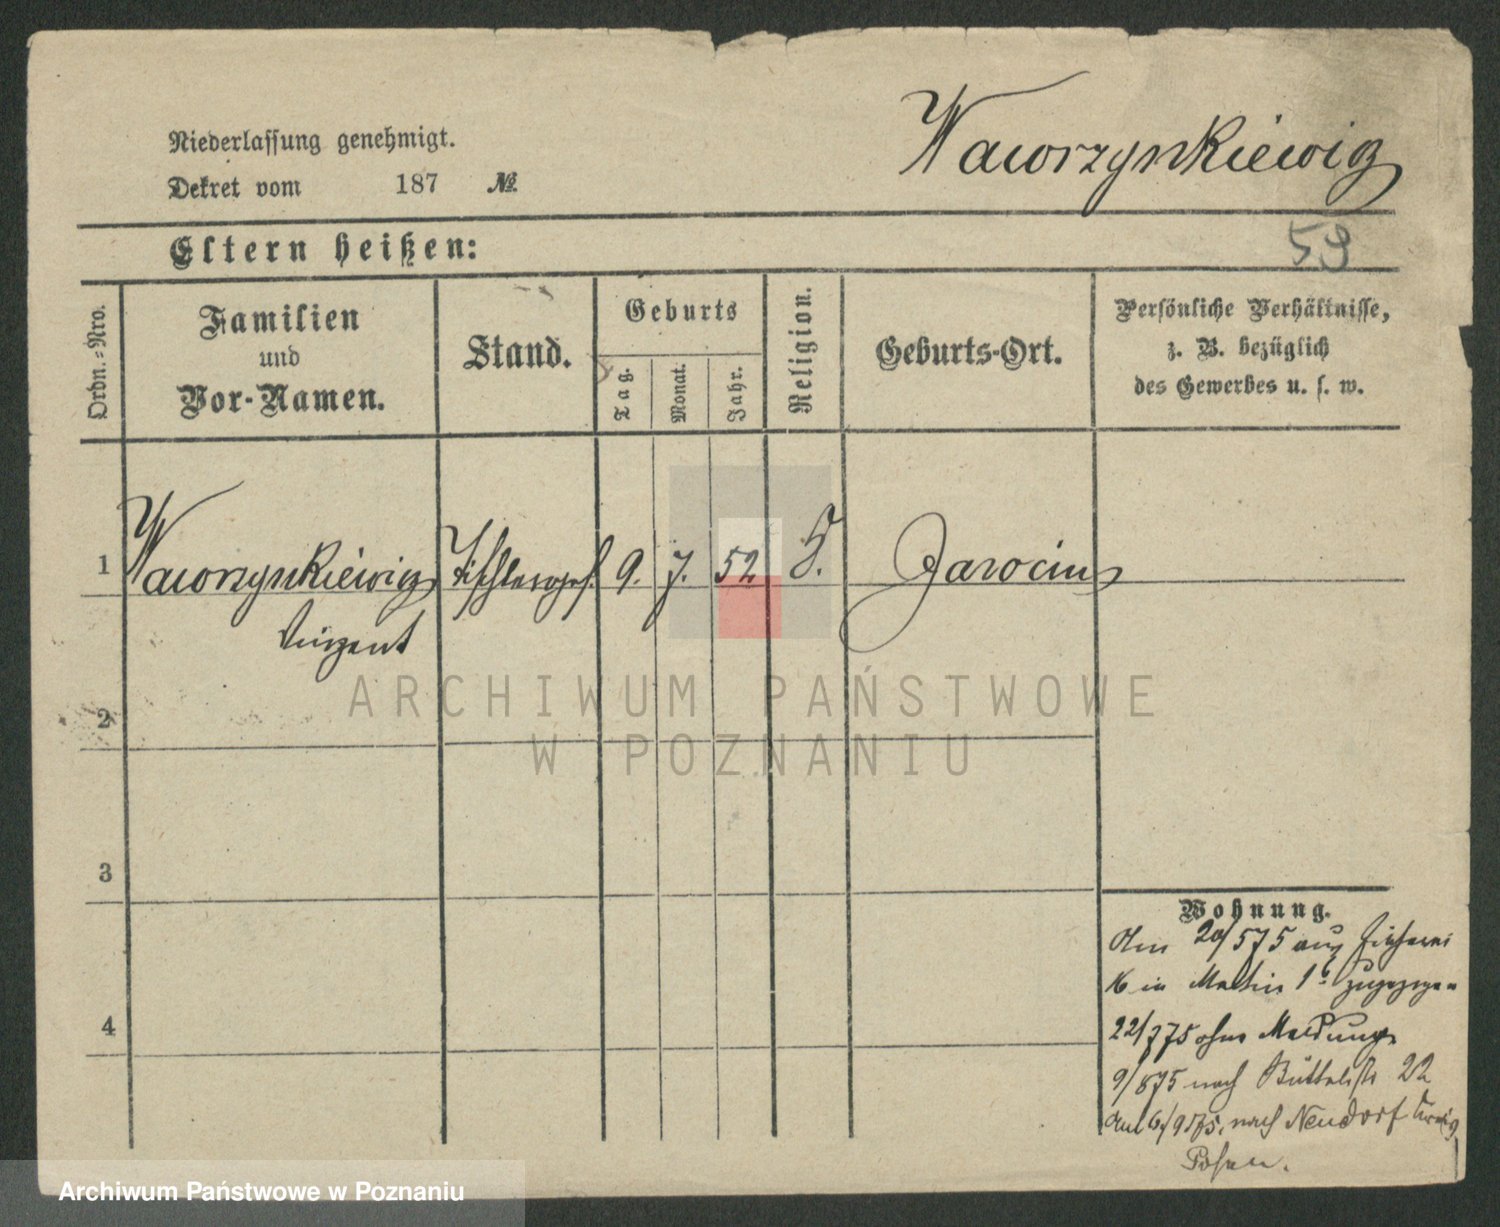 Wawrzynkiewicz
Niederlassung genehmigt.
Dekret vom 187 №
Eltern heißen:
59
Ordn.=Nro.
Familien
und
Vor-Namen.
Stand.
Geburts
Tag.
Monat.
Jahr.
Religion.
Geburts-Ort.
Persönliche Verhältnisse,
z. B. bezüglich
des Gewerbes u. s. w.
1 Wawrzynkiewicz Tischlerges. 9. 7. 52 Jarocin
Vinzent
2
3
4
Wohnung.
Am 20/5 75 aus Fischerei
16 in Martin 16 zugezogen
22/7 75 ohne Meldung
9/8 75 nach Büttelstr 22
Am 6/9 75. nach Neudorf Kreis
Posen.
ARCHIWUM PAŃSTWOWE
W POZNANIU
Archiwum Państwowe w Poznaniu